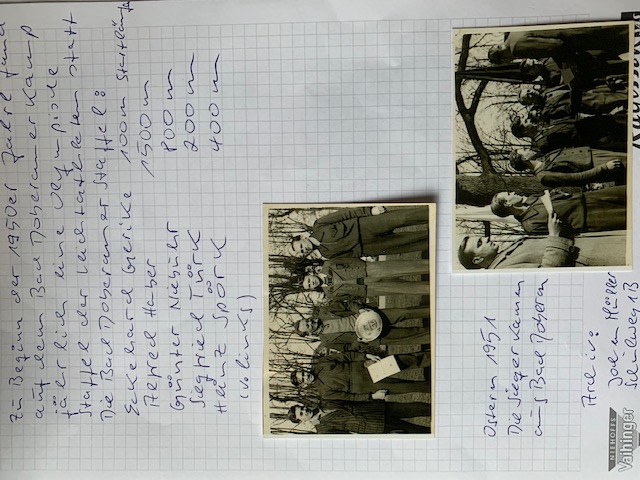 Zu Beginn der 1950er Jahre fand
auf dem Bad Doberaner Kamp
jährlich eine Olympische
Staffel der Leichtathleten statt
Die Bad Doberaner Staffel:
Eckehard Gerike 100m Startläufer
Alfred Haber 1500m
Günter Niebuhr 800m
Siegfried Türk 200m
Heinz Spörk 400m
(v. links)
Ostern 1951
Die Sieger kamen
aus Bad Doberan
Archiv:
Müller
NIEHOFFS
Vaihinger